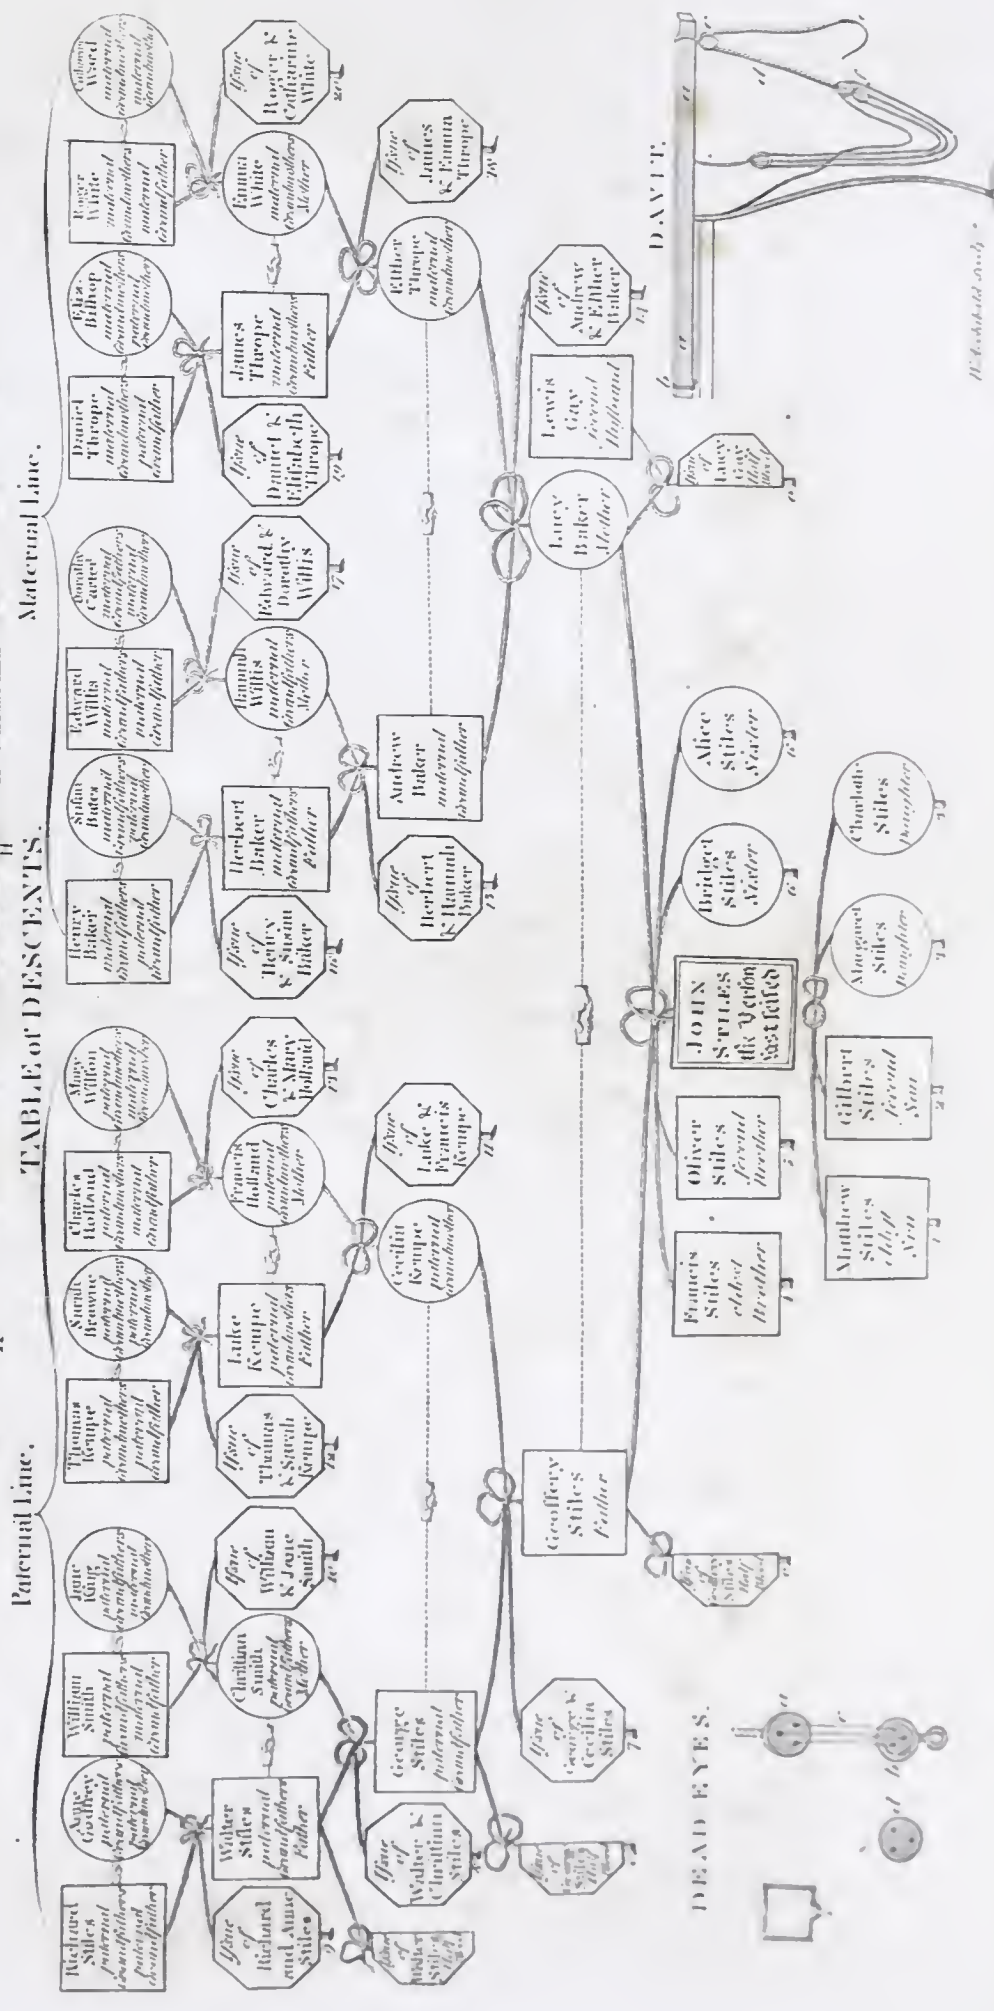 TABLE of DESCENTS.
Paternal Line.
Maternal Line.
Richard
Stiles
paternal
Grandfathers
paternal
Grandfather
Anne
Godfrey
paternal
Grandfathers
paternal
Grandmother
William
Smith
paternal
Grandfathers
maternal
Grandfather
Jane
King
paternal
Grandfathers
maternal
Grandmother
Thomas
Kempe
paternal
Grandmothers
paternal
Grandfather
Sarah
Browne
paternal
Grandmothers
paternal
Grandmother
Charles
Holland
paternal
Grandmothers
maternal
Grandfather
Mary
Wilson
paternal
Grandmothers
maternal
Grandmother
Henry
Baker
maternal
Grandfathers
paternal
Grandfather
Susan
Bates
maternal
Grandfathers
paternal
Grandmother
Edward
Willis
maternal
Grandfathers
maternal
Grandfather
Dorothy
Carter
maternal
Grandfathers
maternal
Grandmother
Daniel
Thrope
maternal
Grandmothers
paternal
Grandfather
Eliz.
Bishop
maternal
Grandmothers
paternal
Grandmother
Roger
White
maternal
Grandmothers
maternal
Grandfather
Ward
maternal
Grandmothers
maternal
Grandmother
Issue
of
Richard
and Anne
Stiles
9
Walter
Stiles
paternal
Grandfathers
Father
Christian
Smith
paternal
Grandfathers
Mother
Issue
of
William
& Jane
Smith
10
Issue
of
Thomas
& Sarah
Kempe
12
Luke
Kempe
paternal
Grandmothers
Father
Francis
Holland
paternal
Grandmothers
Mother
Issue
of
Charles
& Mary
Holland
13
Issue
of
Henry
& Susan
Baker
Herbert
Baker
maternal
Grandfathers
Father
Hannah
Willis
maternal
Grandfathers
Mother
Issue
of
Edward &
Dorothy
Willis
17
Issue
of
Daniel &
Elisabeth
Thrope
19
James
Thrope
maternal
Grandmothers
Father
Emma
White
maternal
Grandmothers
Mother
Issue
of
Roger &
Catharine
White
20
Issue
of
Walter
Stiles
Half
Issue
of
Walter &
Christian
Stiles
8
George
Stiles
paternal
Grandfather
Cecilia
Kempe
paternal
Grandmother
Issue
of
Luke &
Francis
Kempe
11
Issue
of
Herbert
& Hannah
Baker
15
Andrew
Baker
maternal
Grandfather
Esther
Thrope
maternal
Grandmother
Issue
of
James
& Emma
Thrope
18
Issue
of
George &
Cecilia
Stiles
7
Geoffery
Stiles
Father
Lucy
Baker
Mother
Lewis
Gay
second
Husband
Issue
of
Andrew
& Esther
Baker
14
Stiles
Half
Issue
of
Lucy
Gay
Half
Francis
Stiles
eldest
Brother
Oliver
Stiles
second
Brother
JOHN
STILES
the Person
last seised
Bridget
Stiles
Sister
6
Alice
Stiles
Sister
6
Matthew
Stiles
eldest
Son
1
Gilbert
Stiles
second
Son
2
Margaret
Stiles
Daughter
3
Charlotte
Stiles
Daughter
3
DEAD EYES.
DAVIT.